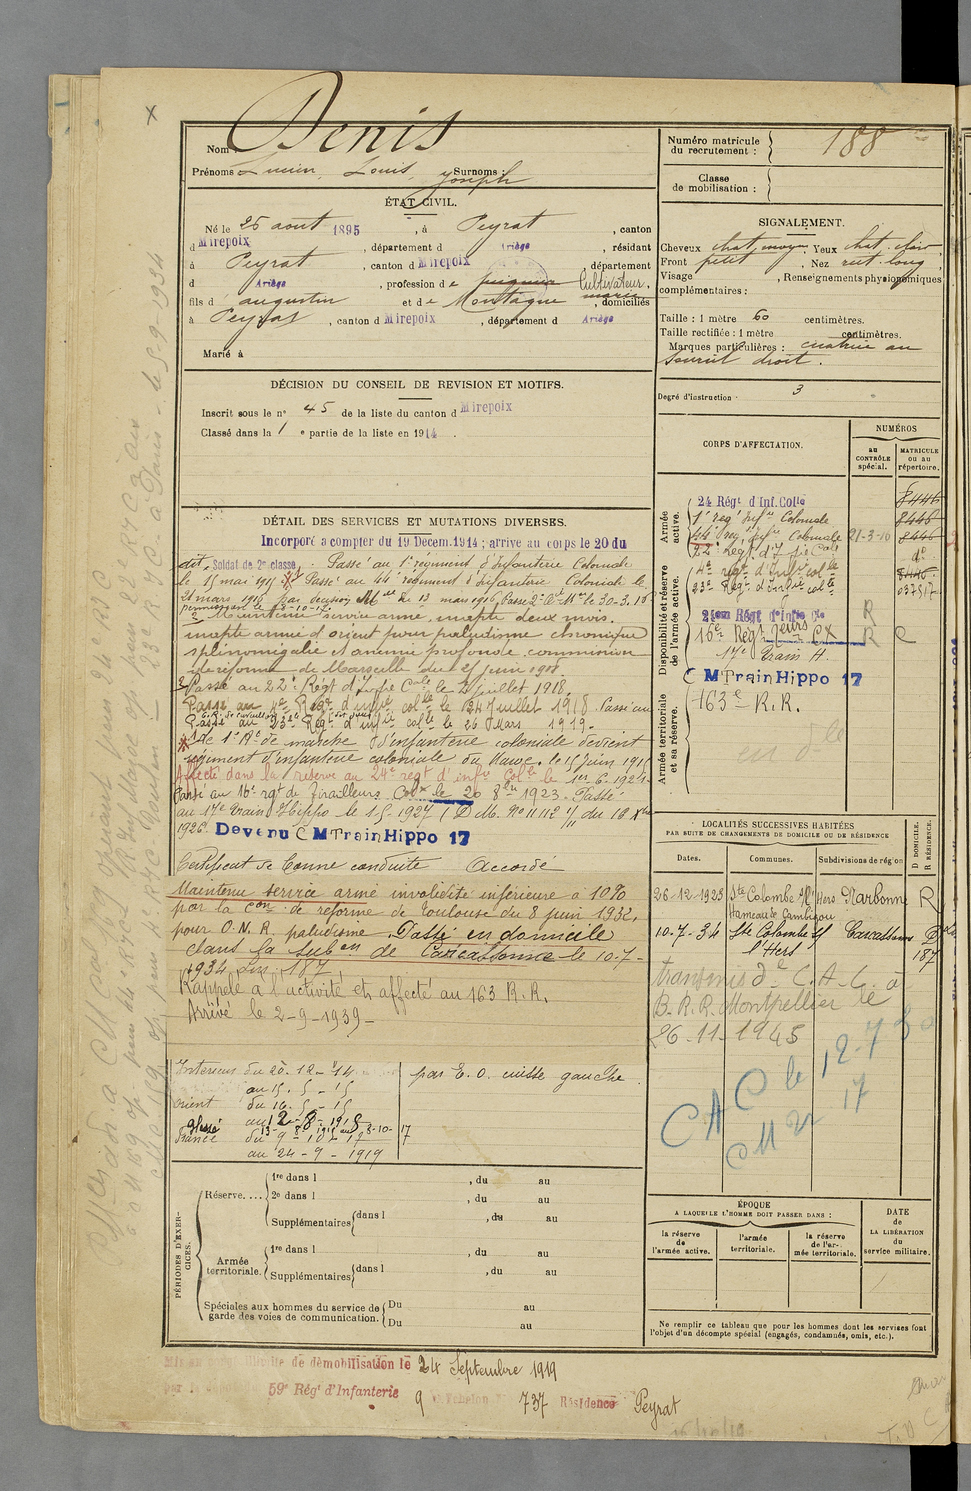 Nom : Denis
Prénoms Lucien, Louis, Joseph Surnoms :
ÉTAT CIVIL.
Né le 25 aout 1895, à Peyrat, canton
d Mirepoix, département d Ariège, résidant
à Peyrat, canton d Mirepoix, département
d Ariège, profession de Cultivateur,
fils d' augustin et de Montagne marie, domiciliés
à Peyrat, canton d Mirepoix, département d Ariège
Marié à
DÉCISION DU CONSEIL DE REVISION ET MOTIFS.
Inscrit sous le n° 45 de la liste du canton d Mirepoix
Classé dans la 1 e partie de la liste en 1914.
DÉTAIL DES SERVICES ET MUTATIONS DIVERSES.
Incorporé a compter du 19 Decem. 1914 ; arrive au corps le 20 du
dit, Soldat de 2e classe. Passé au 1r régiment d'Infanterie Coloniale
le 15 mai 1915 Passé au 44e régiment d'Infanterie Coloniale le
21 mars 1916 par decision Mlle du 13 mars 1916. Passé 2e Cie Mre le 30-3.16
Maintenu service armé, inapte deux mois,
inapte armée d'orient pour paludisme chronique
splénomégalie et anémie profonde, commission
de réforme de Marseille du 25 juin 1918.
Passé au 22e Régt d'Infie Cale le 2 juillet 1918.
Passé au 4e Régt d'infie colle le 24 Juillet 1918. Passé au
Passé au 23e Régt d'infie colle le 26 Mars 1919.
le 1r Rt de marche d'infanterie coloniale devient
régiment d'infanterie coloniale du Maroc, le 15 Juin 1915
Affecté dans la réserve au 24e regt d'infie Colle le 1er 6. 1921.
Passé au 16e rgt de Tirailleurs Colx le 20 8bre 1923. Passé
au 17e Train Hippo le 1.5.1927 (D.M. No 11112 1/11 du 18 Xbre
1926. Devenu C M Train Hippo 17
Certificat de bonne conduite Accordé
Maintenu service armé invalidité inférieure à 10%
par la Con de réforme de Toulouse du 8 juin 1932,
pour O.N.R. paludisme. Passé en domicile
dans la subon de Carcassonne le 10.7-
1934 Sn 187
Rappelé à l'activité et affecté au 163 R.R.
Arrivé le 2-9-1939-
Interieur du 20. 12-14
au 15. 5-15
Orient du 16. 5-15
par E.O. cuisse gauche.
France du 9-10-17
au 24-9-1919
PÉRIODES D'EXERCICES.
Réserve.... 1re dans l , du au
2e dans l , du au
Supplémentaires dans l , du au
Armée territoriale. 1re dans l , du au
Supplémentaires dans l , du au
Spéciales aux hommes du service de garde des voies de communication. Du au
Du au
Mis en congé illimité de démobilisation le 24 Septembre 1919
par le 59e Rég' d'Infanterie 9 echelon 737 Résidence Peyrat
Numéro matricule du recrutement : 188
Classe de mobilisation :
SIGNALEMENT.
Cheveux chat. moyen Yeux chat. clair,
Front petit, Nez rect. long,
Visage , Renseignements physionomiques
complémentaires :
Taille : 1 mètre 60 centimètres.
Taille rectifiée : 1 mètre centimètres.
Marques particulières : cicatrice au
sourcil droit.
Degré d'instruction : 3
CORPS D'AFFECTATION.
NUMÉROS
au CONTRÔLE spécial.
MATRICULE ou au répertoire.
Armée active.
24 Régt d'Inf. Colle 8446
1r régt Infie Coloniale 8446
44 Reg. Infie Coloniale 21-3-16 8446
22e Regt d'Infie Cale do
4e régt d'Infie colle 8446
23e Régt d'Infie colle 037517
Disponibilité et réserve de l'armée active.
16e Régt Tirailleurs CX R C
17e Train H.
C M Train Hippo 17
Armée territoriale et sa réserve.
163e R.R.
LOCALITÉS SUCCESSIVES HABITÉES
PAR SUITE DE CHANGEMENTS DE DOMICILE OU DE RÉSIDENCE
Dates. Communes. Subdivisions de région D DOMICILE. R RÉSIDENCE.
26-12-1923 Ste Colombe s/l'Hers Narbonne R
Hameau de Cambigou
10-7-34 Ste Colombe s/ l'Hers Carcassonne D 187
transmis de C.A.C. a
B.R.R. Montpellier le
26-11-1945
CAC le 12-7-30
CM 17
ÉPOQUE
A LAQUELLE L'HOMME DOIT PASSER DANS :
la réserve de l'armée active.
l'armée territoriale.
la réserve de l'armée territoriale.
DATE de LA LIBÉRATION du service militaire.
Ne remplir ce tableau que pour les hommes dont les services font
l'objet d'un décompte spécial (engagés, condamnés, omis, etc.).